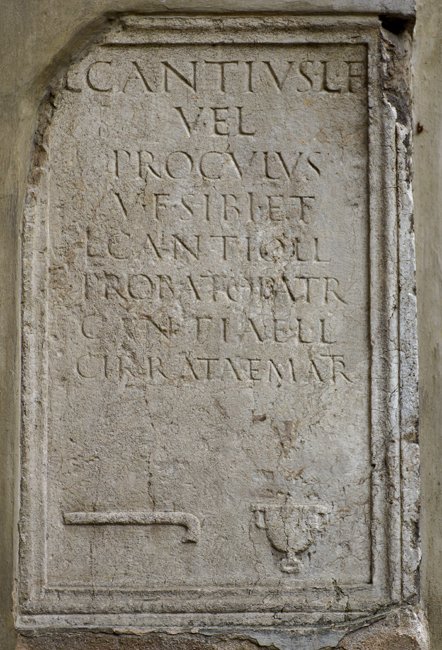 L CANTIVS L F
VEL
PROCVLVS
V F SIBI ET
L CANTIO L L
PROBATO PATR
CANTIAE L L
CIRRATAE MATR